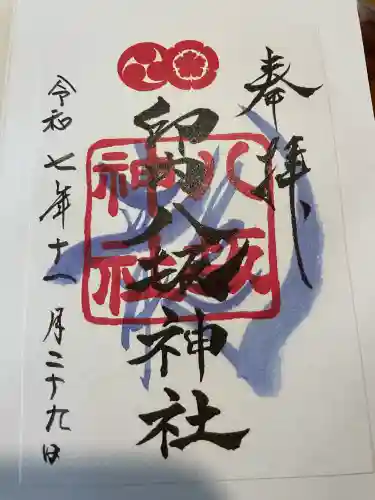 奉拝
印内八坂神社
八坂
神社
令和七年十一月二十九日